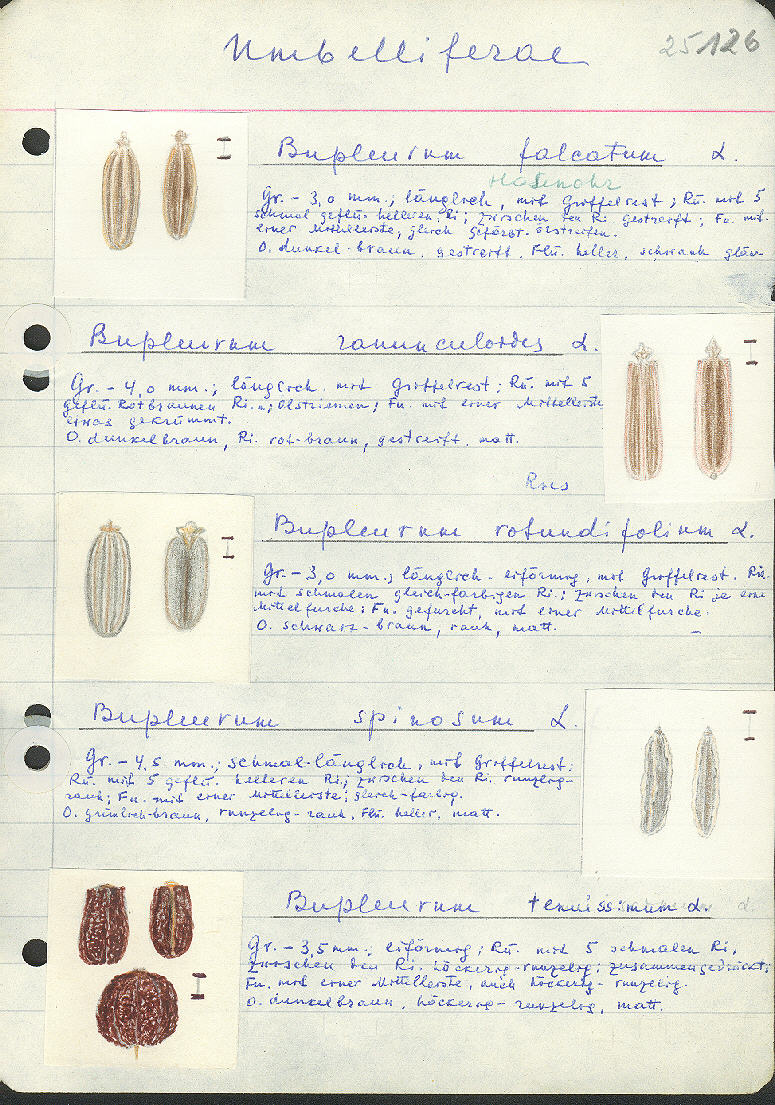 Umbelliferae 25 126
Bupleurum falcatum L.
Hasenohr
Gr. - 3,0 mm.; länglich, mit Griffelrest; Rü. mit 5
schmal geflü. helleren Ri; zwischen den Ri gestreift; Fu. mit
einer Mittelleiste, gleich gefärbt. Ölstreifen.
O. dunkel-braun, gestreift, Flü. heller, schwach glän-
Bupleurum ranunculoides L.
Gr. - 4,0 mm.; länglich. mit Griffelrest; Rü. mit 5
geflü. Rotbraunen Ri. u; Ölstriemen; Fu. mit einer Mittelleiste
etwas gekrümmt.
O. dunkelbraun, Ri. rot-braun, gestreift, matt.
Bupleurum rotundifolium L.
Gr. - 3,0 mm.; länglich-eiförmig, mit Griffelrest. Rü.
mit schmalen gleich-farbigen Ri.; zwischen den Ri je eine
Mittelfurche; Fu. gefurcht, mit einer Mittelfurche.
O. schwarz-braun, rauh, matt.
Bupleurum spinosum L.
Gr. - 4,5 mm.; schmal-länglich, mit Griffelrest;
Rü. mit 5 geflü. helleren Ri; zwischen den Ri. runzelig-
rauh; Fu. mit einer Mittelleiste; gleich-farbig.
O. grünlich-braun, runzelig-rauh, Flü. heller, matt.
Bupleurum tenuissimum L.
Gr. - 3,5 mm.; eiförmig; Rü. mit 5 schmalen Ri,
zwischen den Ri. höckerig-runzelig; zusammengedrückt;
Fu. mit einer Mittelleiste, auch höckerig-runzelig.
O. dunkelbraun, höckerig-runzelig, matt.